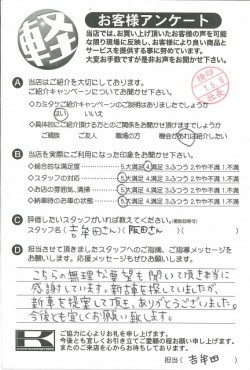 軽
お客様アンケート
当店では、お買い上げ頂いたお客様の声を可能
な限り現場に反映し、お客様により良い商品と
サービスを提供する事に努めています。
大変お手数ですが是非お声をお聞かせ下さい。
A 当店はご紹介を大切にしております。
ご紹介キャンペーンについてお聞かせ下さい。
◇カミタケご紹介キャンペーンのご説明はありましたでしょうか
はい いいえ
◇具体的にご紹介頂ける方とのご関係をお聞かせ頂けますでしょうか
ご親族 ご友人 職場の方 機会があれば紹介したい
B 当店を実際にご利用になった印象をお聞かせ下さい。
◇総合的な満足度 5.大満足 4.満足 3.ふつう 2.やや不満 1.不満
◇スタッフの対応 5.大満足 4.満足 3.ふつう 2.やや不満 1.不満
◇お店の雰囲気、清掃 5.大満足 4.満足 3.ふつう 2.やや不満 1.不満
◇納車時のお車の状態 5.大満足 4.満足 3.ふつう 2.やや不満 1.不満
C 評価したいスタッフがいれば教えてください。(複数回答可)
スタッフ名( 吉年田さん )( 阪田さん )
D 担当させて頂きましたスタッフへのご指摘、ご指導メッセージを
お願いします。応援メッセージもぜひお願いします。
こちらの無理な要望も聞いて頂き本当に
感謝しています。新古車を探していましたが、
新車を提案して頂き、ありがとうございました。
今後とも宜しくお願い致します。
ご協力に心よりお礼を申し上げます。
今後とも宜しくお引き立てご愛顧の程お願い申し上げます。
またのご来店を心からお待ちしております。
担当( 吉年田 )